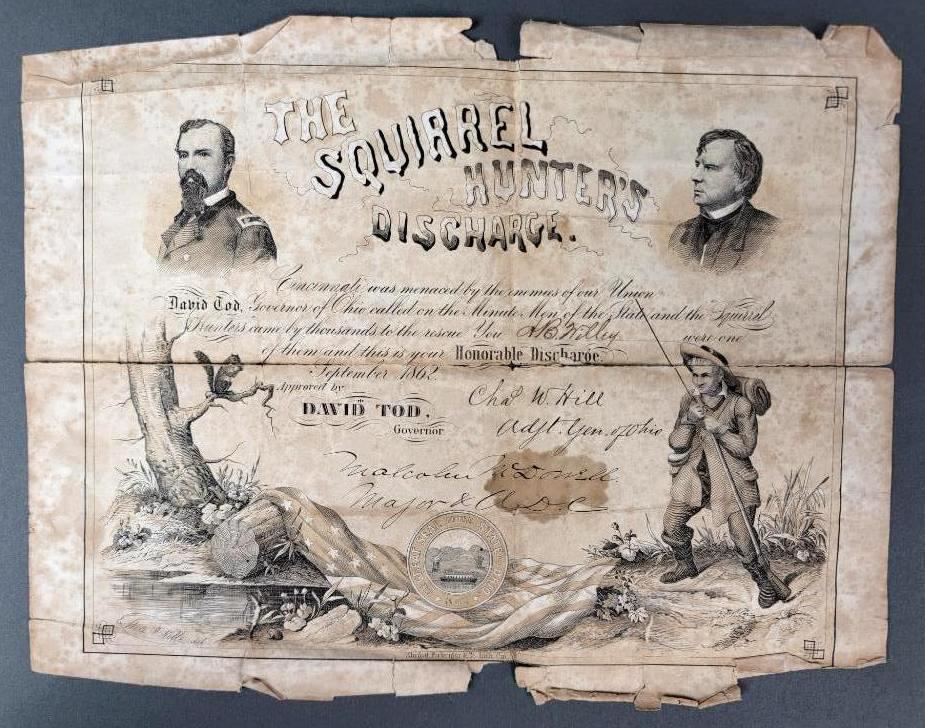 THE
SQUIRREL
HUNTER'S
DISCHARGE.
Cincinnati was menaced by the enemies of our Union
David Tod, Governor of Ohio called on the Minute Men of the State and the Squirrel
Hunters came by thousands to the rescue You were one
of them and this is your Honorable Discharge.
September 1862.
Approved by
DAVID TOD,
Governor
Chas W. Hill
Adjt. Gen. of Ohio
Malcolm McDowell
Major & A.D.C